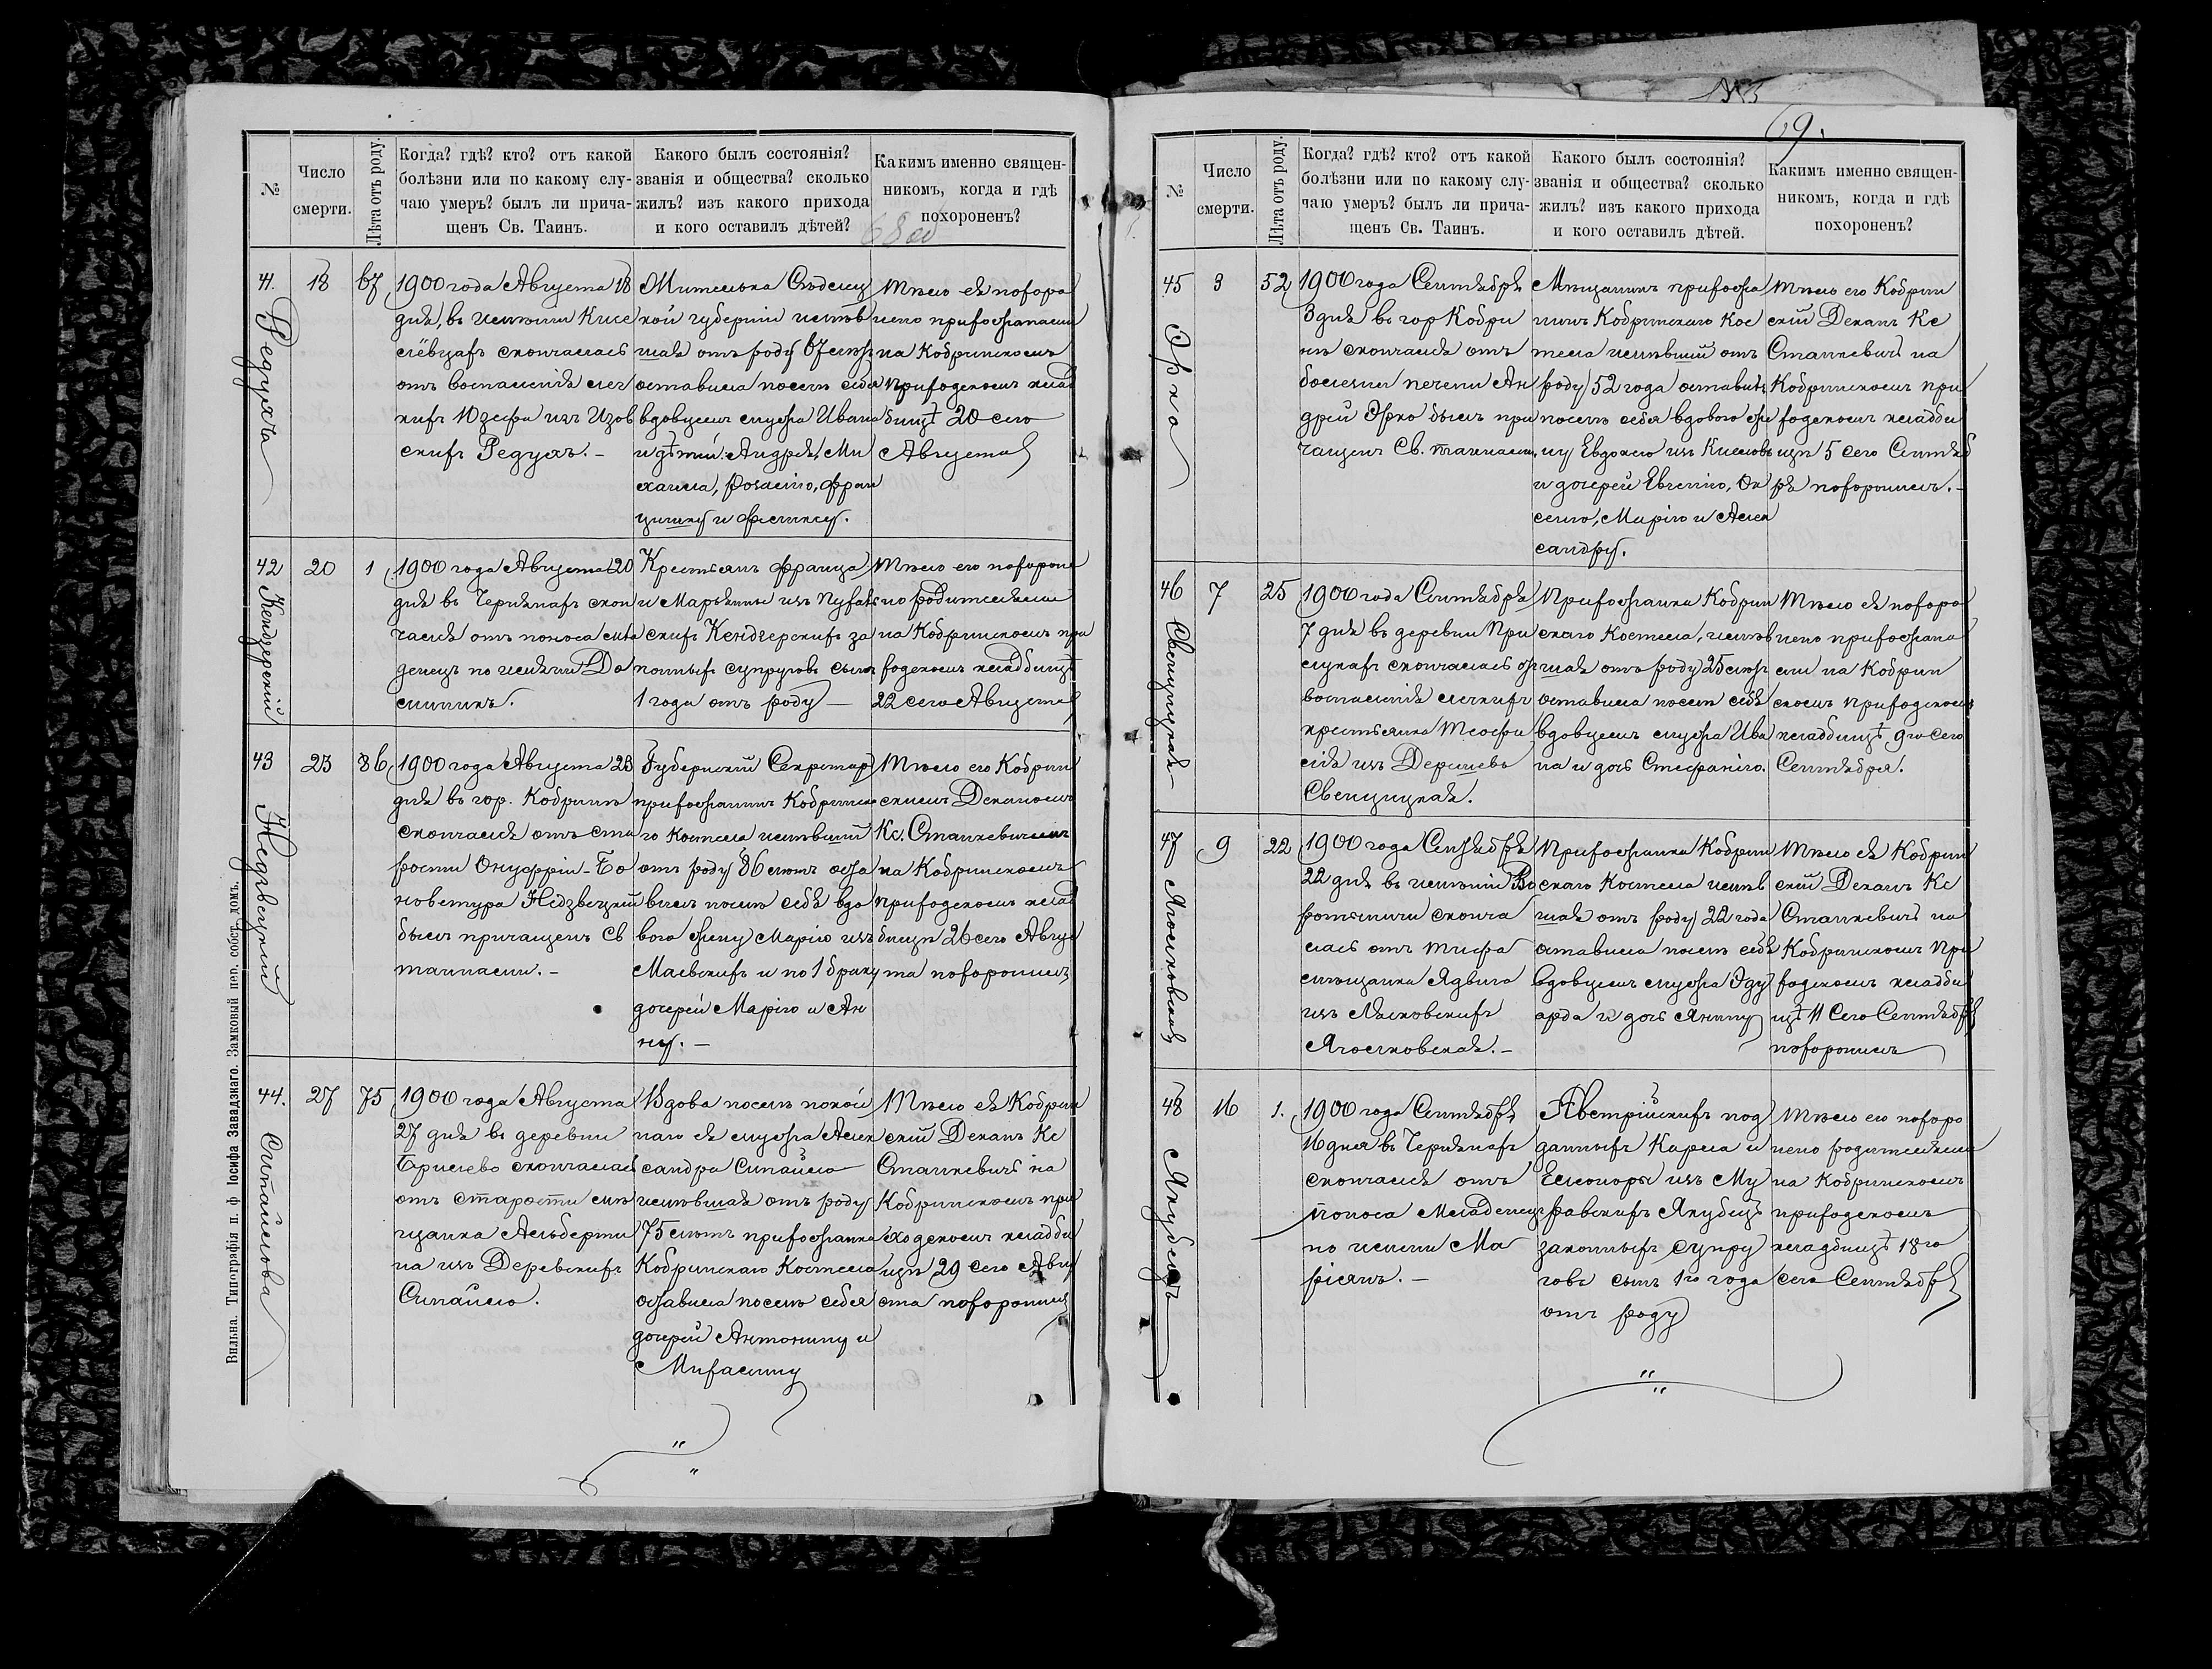 №
Число
смерти.
Лѣта отъ роду.
Когда? гдѣ? кто? отъ какой
болѣзни или по какому слу-
чаю умеръ? былъ ли прича-
щенъ Св. Таинъ.
Какого былъ состоянія?
званія и общества? сколько
жилъ? изъ какого прихода
и кого оставилъ дѣтей?
Какимъ именно священ-
никомъ, когда и гдѣ
похороненъ?
68 об
41.
Редухъ
18
67
1900 года Августа 18
дня, въ имѣніи Кисе
лёвцахъ скончалась
отъ воспаленія лег
кихъ Юзефа изъ Изов
скихъ Редухъ. -
Жителька Сѣдлец
кой губерніи имѣв
шая отъ роду 67 лѣтъ
оставила послѣ себя
вдовцемъ мужа Ивана
и дѣтей: Андрея, Ми
хаила, Розалію, Фран
цишку и Феликсу.
Тѣло ея похоро
нено прихожанами
на Кобринскомъ
приходскомъ клад
бищѣ 20 сего
Августа
42
Кендзерскій
20
1
1900 года Августа 20
дня въ Чернянахъ скон
чался отъ поноса мла
денецъ по имени До
миникъ.
Крестьянъ Франца
и Марьянны изъ Пухаль
скихъ Кендзерскихъ за
конныхъ супруговъ сынъ
1 года отъ роду —
Тѣло его похороне
но родителями
на Кобринскомъ при
ходскомъ кладбищѣ
22 сего Августа
43
Недзвецкій
23
86
1900 года Августа 23
дня въ гор. Кобринѣ
скончался отъ ста
рости Онуфрій-Бо
новетура Недзвецкій
былъ причащенъ Св
тайнами. -
Губернскій Секретарь
прихожанинъ Кобринска
го костела имѣвшій
отъ роду 86 лѣтъ оста
вилъ послѣ себя вдо
вою жену Марію изъ
Маевскихъ и по 1 браку
дочерей Марію и Ан
ну. —
Тѣло его Кобрин
скимъ Деканомъ
Кс. Станкевичемъ
на Кобринскомъ
приходскомъ клад
бищѣ 26 сего Авгус
та похоронилъ
44.
Сипайлова
27
75
1900 года Августа
27 дня въ деревни
Брилево скончалась
отъ старости мѣ
щанка Альберти
на изъ Деревскихъ
Сипайло.
Вдова послѣ покой
наго ея мужа Алек
сандра Сипайло
имѣвшая отъ роду
75 лѣтъ прихожанка
Кобринскаго Костела
оставила послѣ себя
дочерей Антонину и
Михалину
Тѣло ея Кобрин
скій Деканъ Кс
Станкевичъ на
Кобринскомъ при
ходскомъ кладби
щѣ 29 сего Авгу
ста похоронилъ
Вильна. Типографія п. ф Іосифа Завадзкаго. Замковый пер. собст. домъ.
69.
№
Число
смерти.
Лѣта отъ роду.
Когда? гдѣ? кто? отъ какой
болѣзни или по какому слу-
чаю умеръ? былъ ли прича-
щенъ Св. Таинъ.
Какого былъ состоянія?
званія и общества? сколько
жилъ? изъ какого прихода
и кого оставилъ дѣтей.
Какимъ именно священ-
никомъ, когда и гдѣ
похороненъ?
45
Орко
3
52
1900 года Сентября
3 дня въ гор Кобри
нѣ скончался отъ
болезни печени Ан
дрей Орко былъ при
чащенъ Св. тайнами,
Мѣщанинъ прихожа
нинъ Кобринскаго Кос
тела имѣвшій отъ
роду 52 года оставилъ
послѣ себя вдовою же
ну Евдокію изъ
и дочерей Евгенію, Ок
сеню, Марію и Алек
сандру.
Тѣло его Кобрин
скій Деканъ Кс
Станкевичъ на
Кобринскомъ при
ходскомъ кладби
щѣ 5 сего Сентяб
ря похоронилъ. -
46
Свенцицкая
7
25
1900 года Сентября
7 дня въ деревни При
лукахъ скончалась отъ
воспаленія легкихъ
крестьянка Теофи
лія изъ Деричевъ
Свенцицкая.
Прихожанка Кобрин
скаго Костела, имѣв
шая отъ роду 25 лѣтъ
оставила послѣ себя
вдовцемъ мужа Ива
на и дочь Стефанію.
Тѣло ея похоро
нено прихожана
ми на Кобрин
скомъ приходскомъ
кладбищѣ 9го сего
Сентября.
47
9
22
1900 года Сентября
22 дня въ имѣніи Во
ротыничи сконча
лась отъ тифа
мѣщанка Ядвига
изъ Лясковскихъ
Прихожанка Кобрин
скаго Костела имѣв
шая отъ роду 22 года
оставила послѣ себя
вдовцемъ мужа Эду
арда и дочь Янину
Тѣло ея Кобрин
скій Деканъ Кс
Станкевичъ на
Кобринскомъ При
ходскомъ кладби
щѣ 11 Сего Сентября
похоронилъ
48
Якубецъ
16
1.
1900 года Сентября
16 дня въ Чернянахъ
скончался отъ
поноса младенецъ
по имени Ма
ріянъ. -
Австрійскихъ под
данныхъ Карла и
Елеоноры изъ Му
равскихъ Якубецъ
законныхъ супру
говъ сынъ 1го года
отъ роду
Тѣло его похоро
нено родителями
на Кобринскомъ
приходскомъ
кладбищѣ 18го
сего Сентября